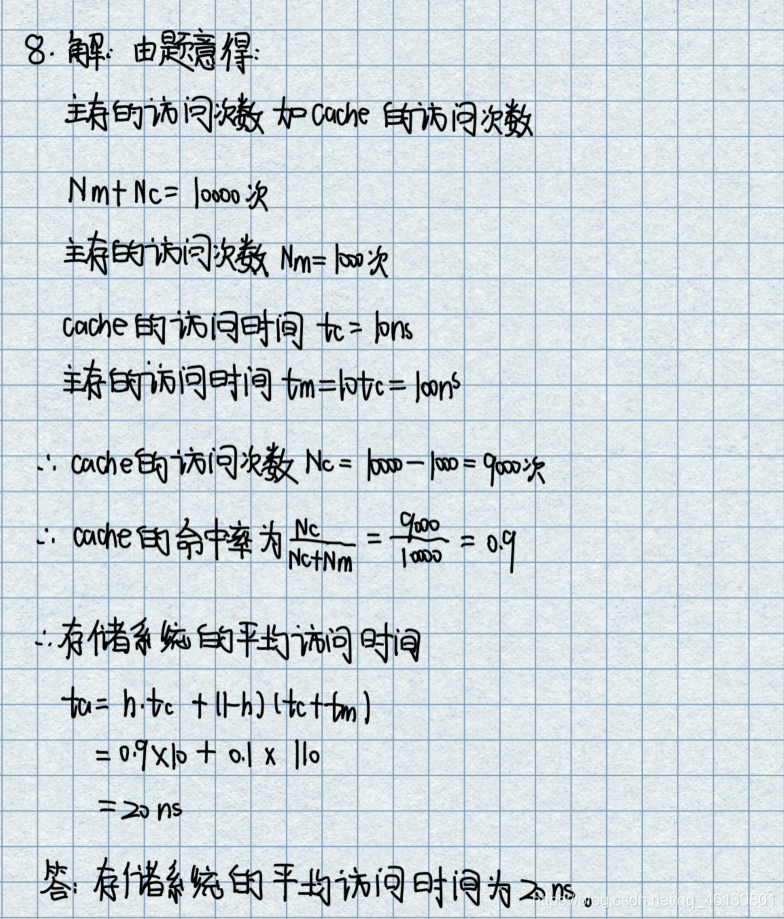 8. 解: 由题意得:
主存的访问次数加cache的访问次数
Nm+Nc= 10000次
主存的访问次数 Nm=1000次
cache的访问时间 tc=10ns
主存的访问时间 tm=10tc=100ns
∴ cache的访问次数 Nc= 10000-1000=9000次
∴ cache的命中率为 Nc/(Nc+Nm) = 9000/10000 = 0.9
∴存储系统的平均访问时间
ta= h·tc +(1-h)(tc+tm)
= 0.9×10 + 0.1 × 110
=20ns
答: 存储系统的平均访问时间为20ns.